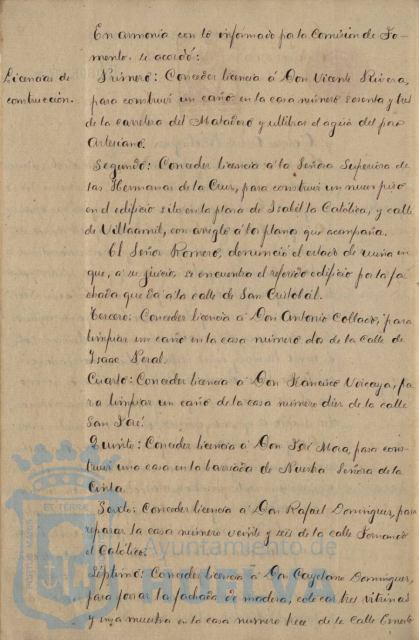 En armonía con lo informado por la Comisión de Fo-
mento, se acordó:
Licencias de
construcción.
Primero: Conceder licencia á Don Vicente Rivera,
para construir un caño en la casa número sesenta y tres
de la carretera del Matadero y utilizar el agua del pozo
Artesiano.
Segundo: Conceder licencia á la Señora Superiora de
las Hermanas de la Cruz, para construir un nuevo piso
en el edificio sito en la plaza de Isabel la Católica, y calle
de Villaamil, con arreglo á los planos que acompaña.
El Señor Romero, denunció el estado de ruina en
que, a su juicio, se encuentra el referido edificio por la fa-
chada que dá á la calle de San Cristobal.
Tercero: Conceder licencia á Don Antonio Collado, para
limpiar un caño en la casa número dos de la calle de
Isaac Peral.
Cuarto: Conceder licencia á Don Francisco Vizcaya, pa-
ra limpiar un caño de la casa número diez de la calle
San José.
Quinto: Conceder licencia á Don José Mora, para cons-
truir una casa en la barriada de Nuestra Señora de la
Cinta.
Sexto: Conceder licencia á Don Rafael Dominguez, para
reparar la casa número veinte y seis de la calle Fernando
el Católico.
Séptimo: Conceder licencia á Don Cayetano Dominguez,
para forrar la fachada de madera, colocar tres vitrinas
y una muestra en la casa número trece de la calle Ernesto
Ayuntamiento de
HUELVA